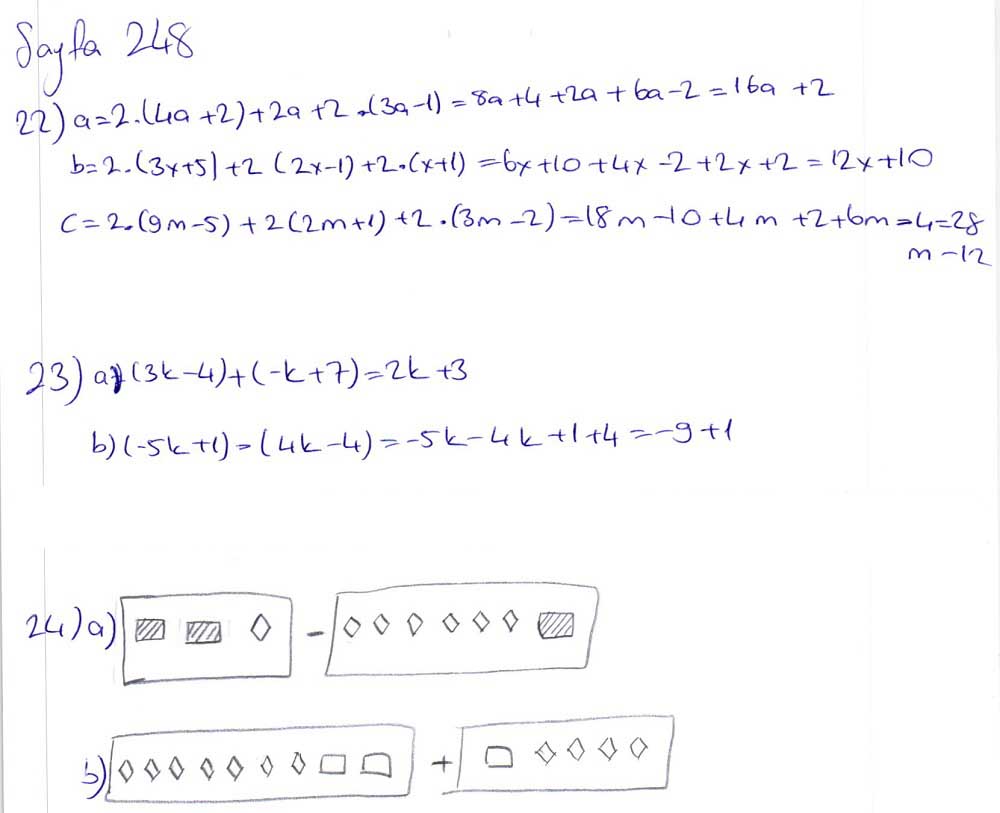 Sayfa 248
22) a=2.(4a+2)+2a+2.(3a-1)=8a+4+2a+6a-2=16a+2
b=2.(3x+5)+2(2x-1)+2.(x+1)=6x+10+4x-2+2x+2=12x+10
c=2.(9m-5)+2(2m+1)+2.(3m-2)=18m-10+4m+2+6m=4=28
m-12
23) a) (3k-4)+(-k+7)=2k+3
b) (-5k+1)=(4k-4)=-5k-4k+1+4=-9+1
24) a) -
b) +